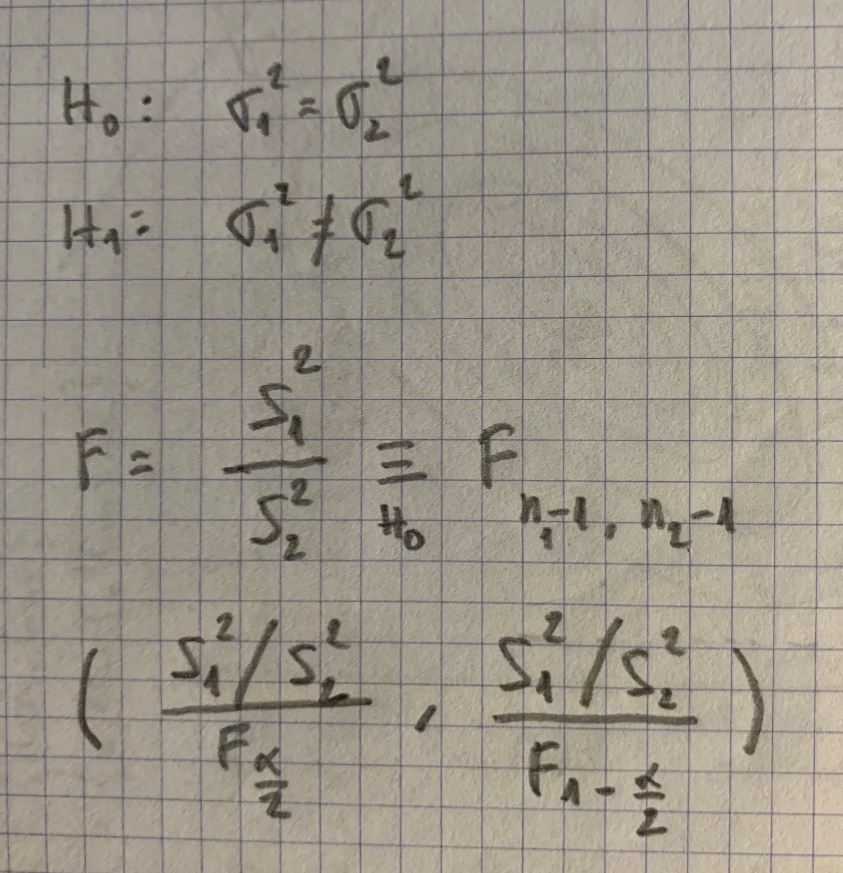 H₀: σ₁² = σ₂²
H₁: σ₁² ≠ σ₂²
F = S₁² / S₂² ≡_{H₀} F_{n₁-1, n₂-1}
( (S₁²/S₂²) / F_{α/2} , (S₁²/S₂²) / F_{1-α/2} )